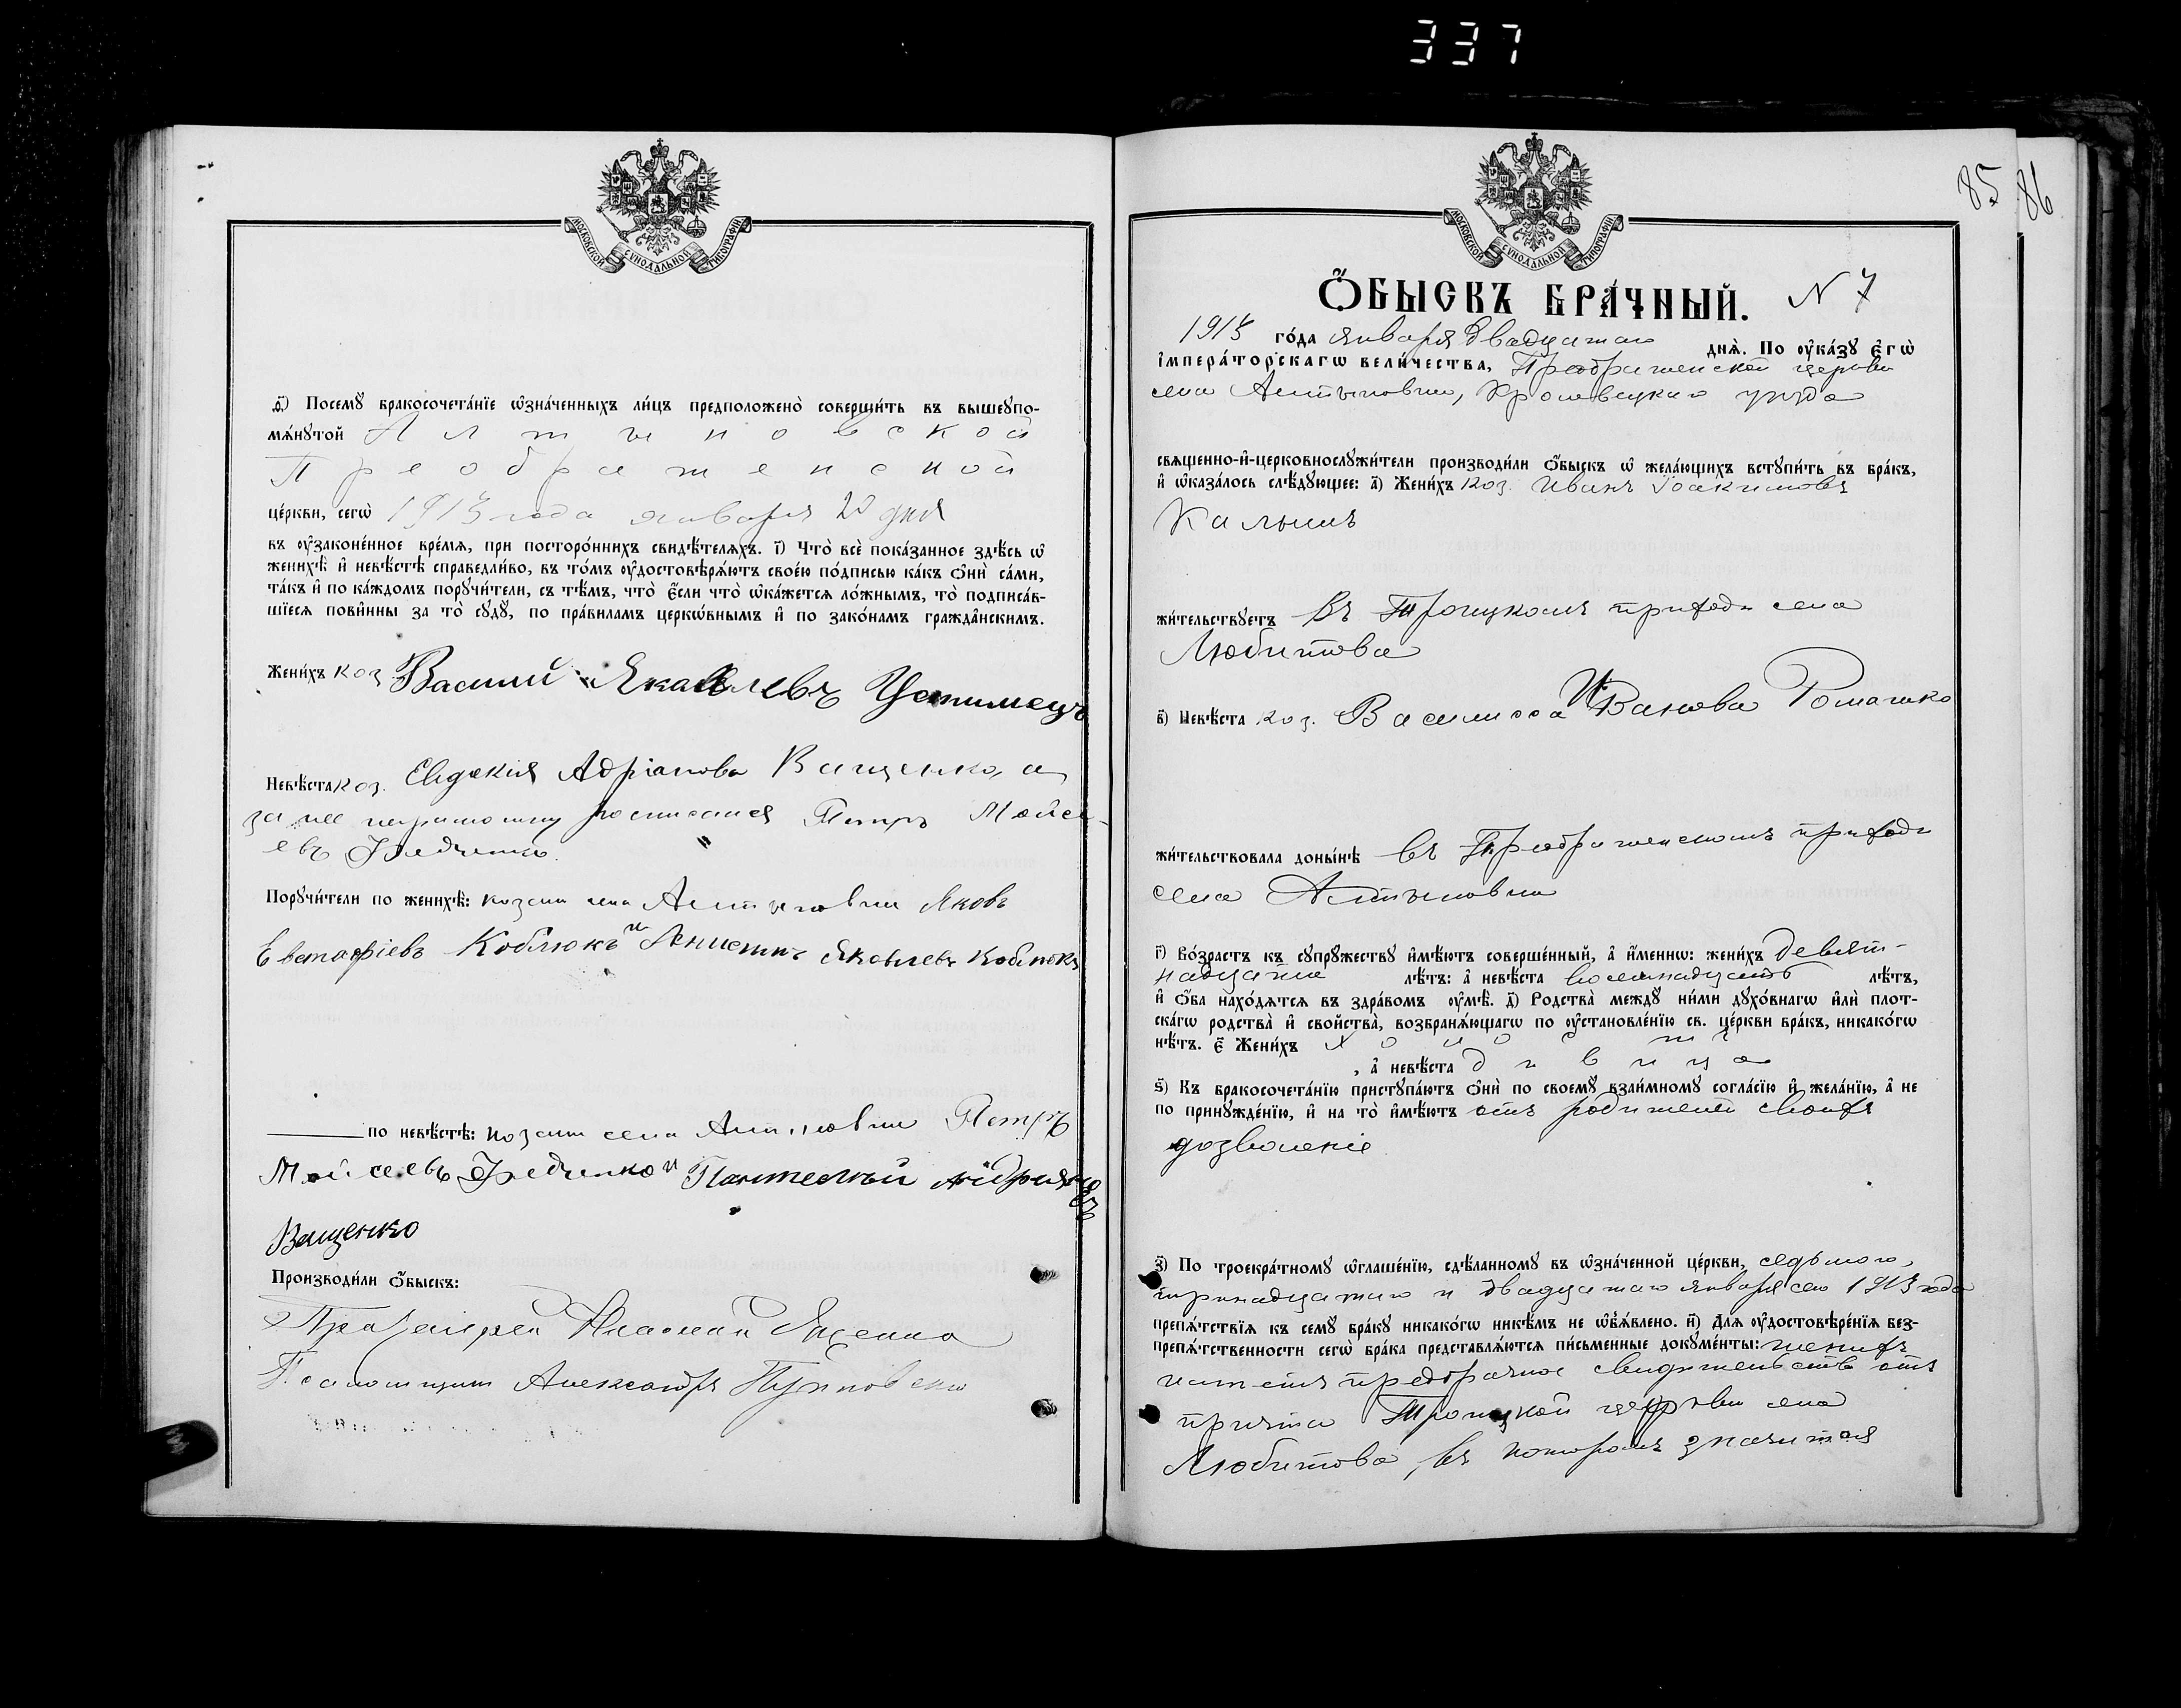 337
МОСКОВСКОЙ СѴНОДАЛЬНОЙ ТИПОГРАФІИ
д҃і) Посемꙋ бракосочета́нїе ѡ҆зна́ченныхъ ли́цъ предположено̀ соверши́ть въ вышеꙋпо-
мѧ́нꙋтой Алтыновской
Преображенской
це́ркви, сегѡ̀ 1913 года января 20 дня
въ ᲂу҆законе́нное вре́мѧ, при посторо́ннихъ свидѣ́телѧхъ. і҃) Что̀ всѐ пока́занное здѣ́сь ѡ҆
женихѣ̀ и҆ невѣ́стѣ справедли́во, въ то́мъ ᲂу҆достовѣрѧ́ютъ свое́ю по́дписью ка́къ ѻ҆нѝ са́ми,
та́къ и҆ по ка́ждомъ порꙋчи́тели, съ тѣ́мъ, что̀ є҆́сли что̀ ѡ҆ка́жетсѧ ло́жнымъ, то̀ подписа́в-
шїесѧ пови́нны за то̀ сꙋдꙋ̀, по пра́виламъ церкѡ́внымъ и҆ по зако́намъ гражда́нскимъ.
Жени́хъ коз. Василий Яковлевъ Устимецъ
Невѣ́ста коз. Евдокія Адріанова Ващенко, а
за нее неграмотну росписался Петръ Мойсе-
евъ Федченко.
Порꙋчи́тели по женихѣ̀: козаки села Алтыновки Яковъ
Евстафіевъ Коблюкъ и Яковлевъ Коблюкъ
по невѣ́стѣ: козаки села Алтыновки Петръ
Мойсеевъ Федченко и Пантелей Андріяновъ
Ващенко
Производи́ли ѻ҆́быскъ:
Протоіерей Николай Яценко
Псаломщикъ Александръ
85 86
МОСКОВСКОЙ СѴНОДАЛЬНОЙ ТИПОГРАФІИ
Ѻ҆БЫСКЪ БРА́ЧНЫЙ. N 7
1913 го́да января двадцатаго днѧ̀. По ᲂу҆ка́зꙋ є҆гѡ̀
і҆мпера́торскагѡ вели́чества, Преображенской церкви
села Алтыновки, Кролевецкаго уѣзда
свѧщенно-и҆-церковнослꙋжи́тели производи́ли ѻ҆́быскъ ѡ҆ жела́ющихъ встꙋпи́ть въ бра́къ,
и҆ ѡ҆каза́лось слѣ́дꙋющее: а҃) Жени́хъ коз. Иванъ Іоакимовъ
жи́тельствꙋетъ въ Троицкомъ приходѣ села
Любитова
в҃) Невѣ́ста коз. Василисса Иванова Ромашко
жи́тельствовала доны́нѣ въ Преображенскомъ приходѣ
села Алтыновки
г҃) Во́зрастъ къ сꙋпрꙋ́жествꙋ и҆мѣ́ютъ соверше́нный, а҆ и҆́меннѡ: жени́хъ девят-
надцати лѣ́тъ: а҆ невѣ́ста восемнадцать лѣ́тъ,
и҆ ѻ҆́ба нахо́дѧтсѧ въ здра́вомъ ᲂу҆мѣ̀. д҃) Родства̀ междꙋ̀ ни́ми дꙋхо́внагѡ и҆лѝ плот-
ска́гѡ родства̀ и҆ свойства̀, возбранѧ́ющагѡ по ᲂу҆становле́нїю св. це́ркви бра́къ, никако́гѡ
нѣ́тъ. є҃) Жени́хъ холостъ
, а҆ невѣ́ста дѣвица
ѕ҃) Къ бракосочета́нїю пристꙋпа́ютъ ѻ҆нѝ по своемꙋ̀ взаи́мномꙋ согла́сїю и҆ жела́нїю, а҆ не
по принꙋжде́нїю, и҆ на то̀ и҆мѣ́ютъ отъ родителей своихъ
дозволеніе
з҃) По троекра́тномꙋ ѡ҆глаше́нїю, сдѣ́ланномꙋ въ ѡ҆зна́ченной це́ркви, седьмого,
тринадцатаго и двадцатаго января сего 1913 года
препѧ́тствїѧ къ семꙋ̀ бра́кꙋ никако́гѡ никѣ́мъ не ѡ҆б̾ѧ́влено. и҃) Длѧ ᲂу҆достовѣре́нїѧ без-
препѧ́тственности сегѡ̀ бра́ка представлѧ́ютсѧ пи́сьменные докꙋме́нты: женихъ
предбрачное свидѣтельство отъ
причта Троицкой церкви села
Любитова, въ которомъ значится